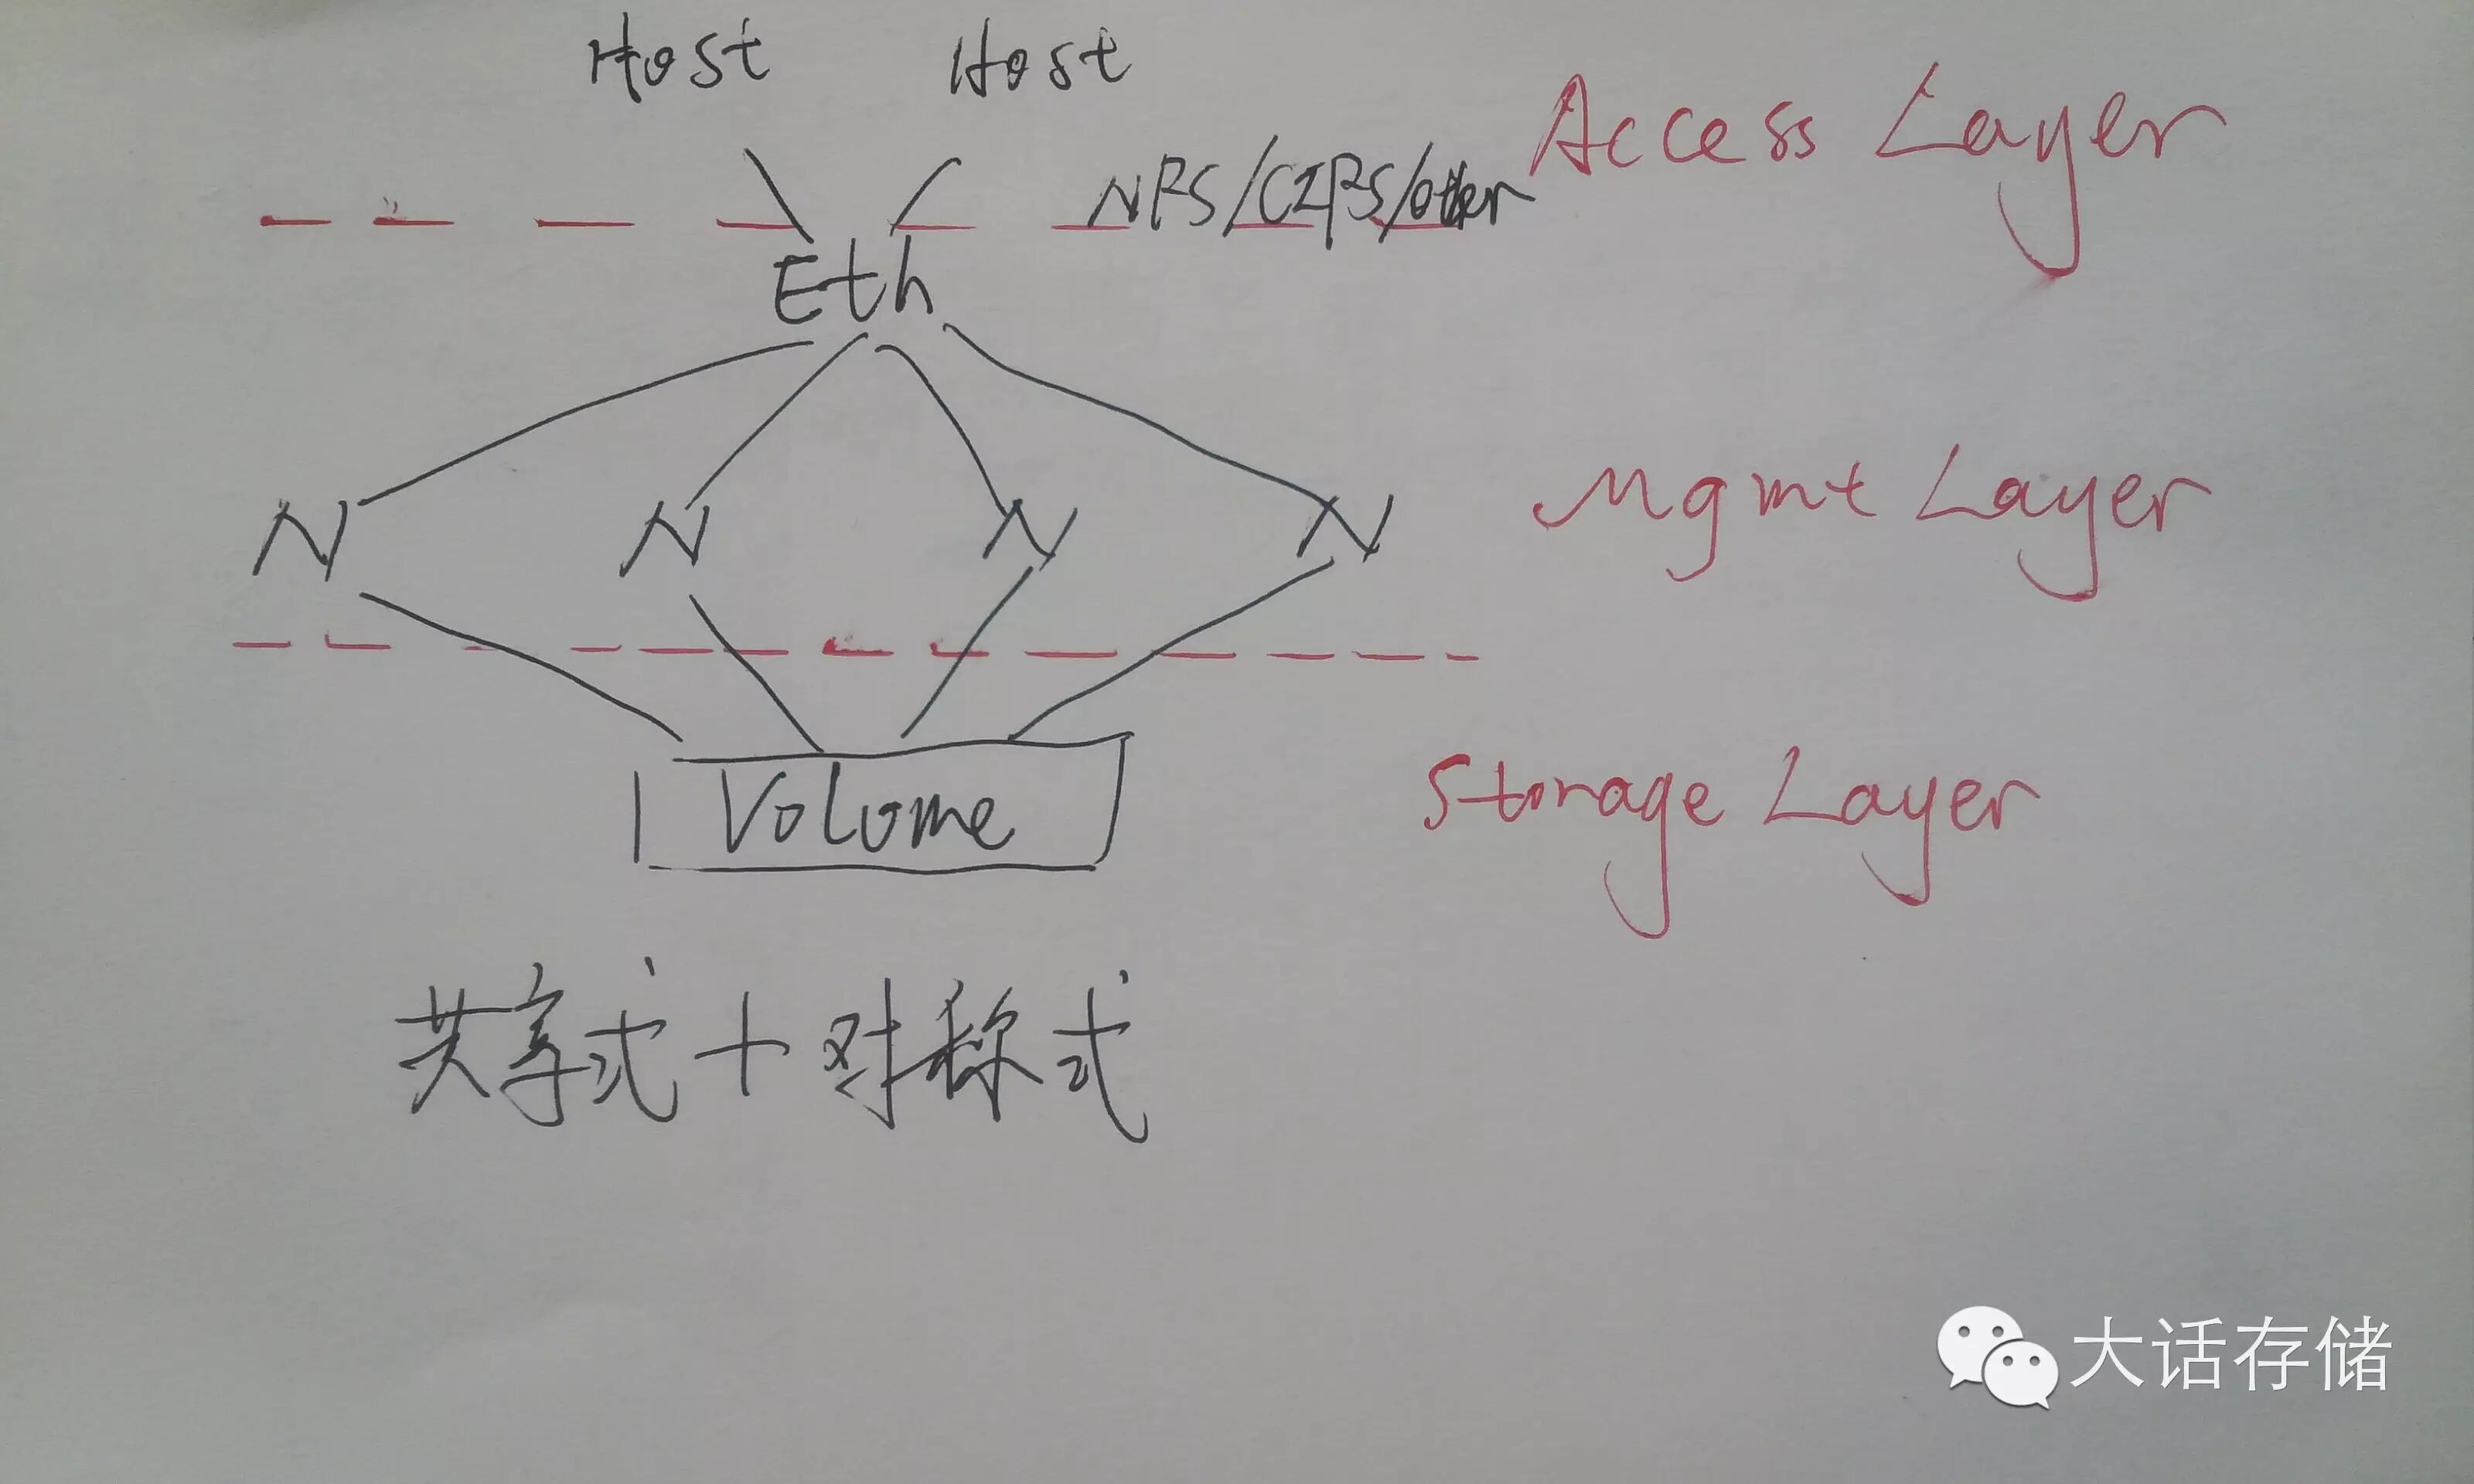 Host Host
NFS/CIFS/other
Access Layer
Eth
N N N N
Mgmt Layer
Volume
Storage Layer
共享式+对称式
大话存储